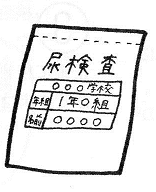 尿検査
○○○学校
年組 1年○組
名前 ○○○○